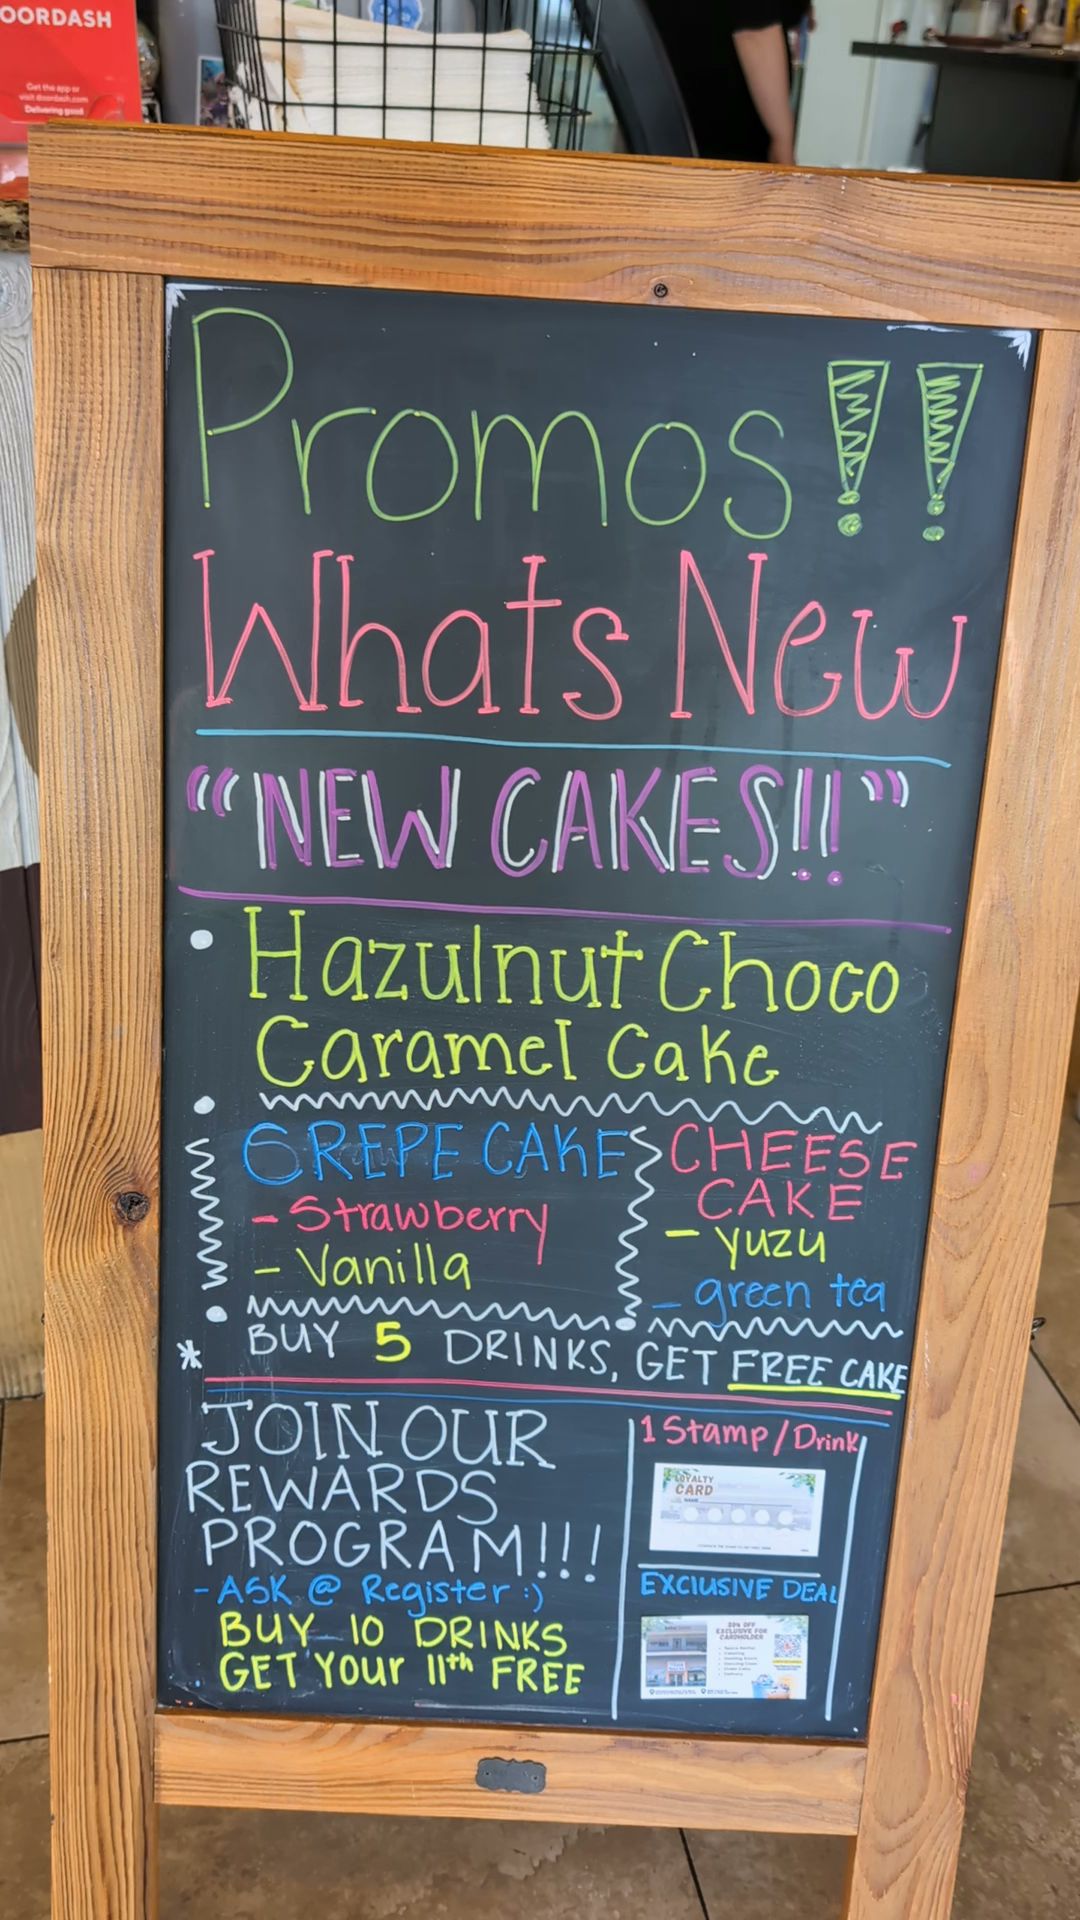 OORDASH
Get the app or
visit doordash.com
Delivering good
Promos!!
Whats New
"NEW CAKES!!"
Hazulnut Choco
Caramel Cake
CREPE CAKE
- Strawberry
- Vanilla
CHEESE
CAKE
- yuzu
- green tea
* BUY 5 DRINKS, GET FREE CAKE
JOIN OUR
REWARDS
PROGRAM!!!
- ASK @ Register :)
BUY 10 DRINKS
GET YOUR 11th FREE
1 Stamp/Drink
LOYALTY
CARD
NAME
EXCLUSIVE DEAL
20% OFF
EXCLUSIVE FOR
CARDHOLDER